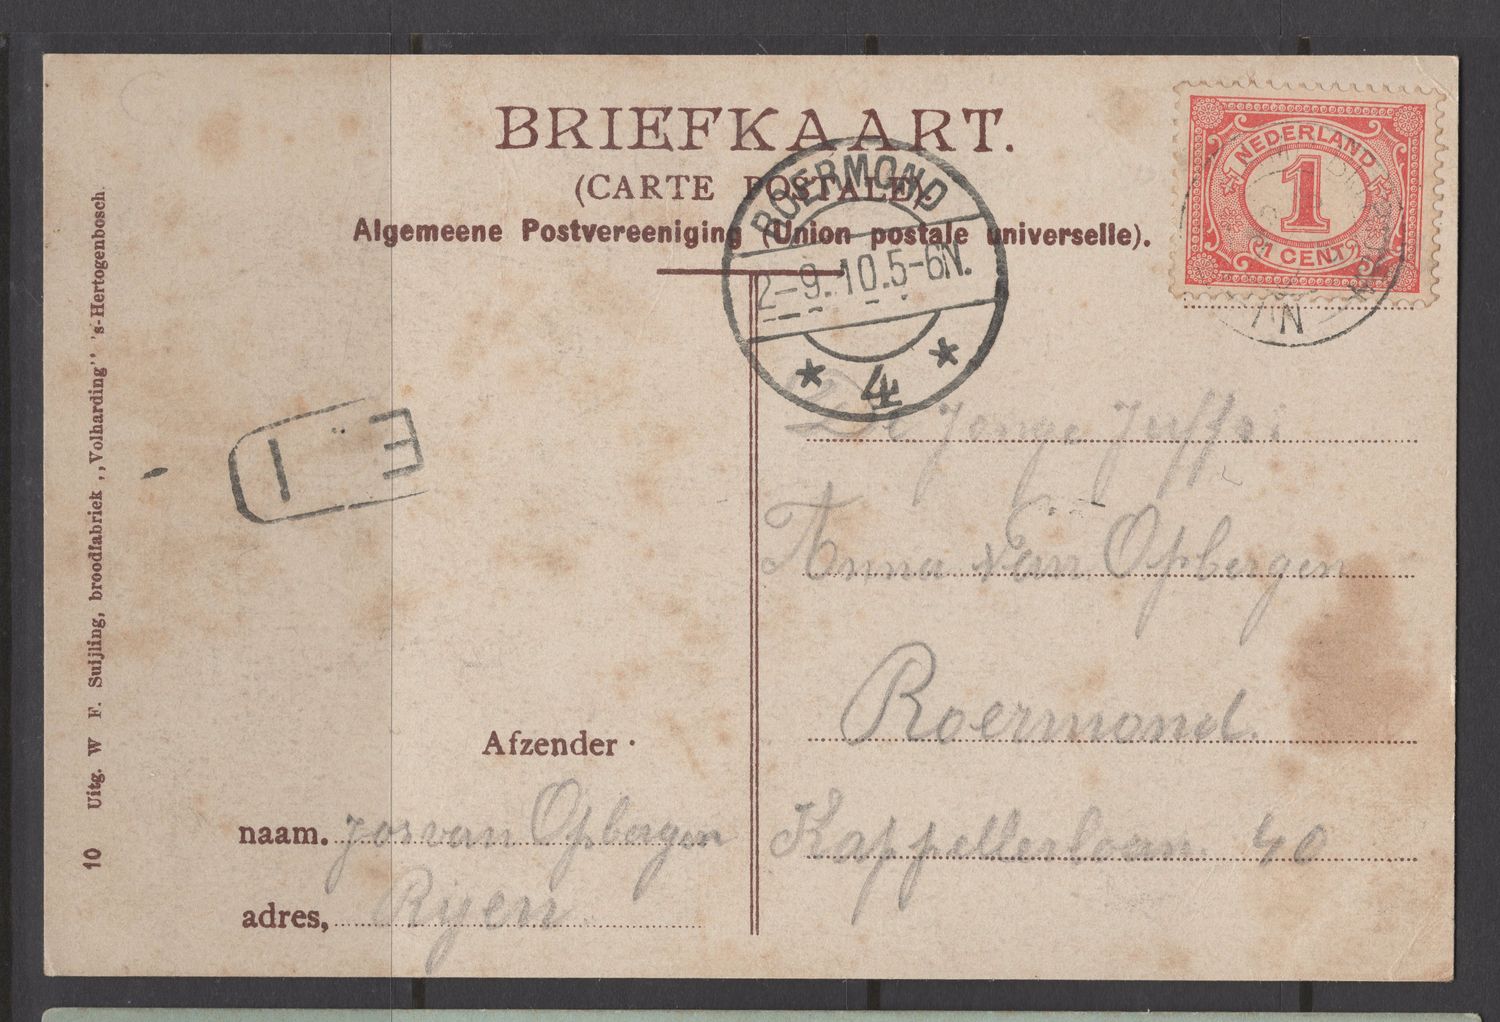 BRIEFKAART.
(CARTE POSTALE).
Algemeene Postvereeniging (Union postale universelle).
NEDERLAND
1
1 CENT
ROERMOND
2-9.10.5-6N.
4
E 1
De Jonge Juffr
Anna van Opbergen
Roermond.
Kappellerlaan. 40
Afzender
naam. Jos van Opbergen
adres, Rijen
10 Uitg. W F. Suijling, broodfabriek ,,Volharding" 's-Hertogenbosch.